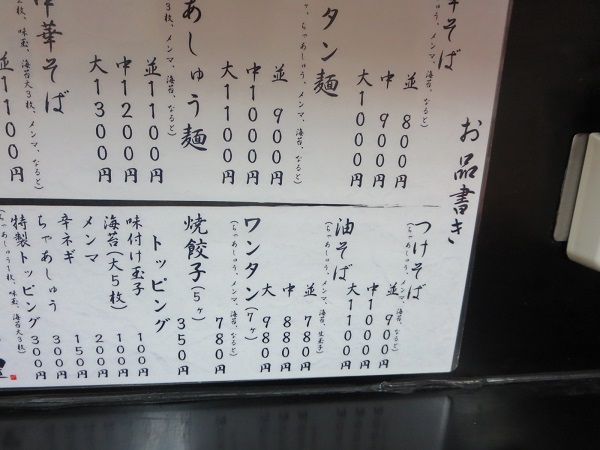 お品書き
そば
(ちゃあしゅう、メンマ、海苔、なると)
並 800円
中 900円
大1000円
タン麺
ちゃあしゅう、メンマ、海苔、なると)
並 900円
中1000円
大1100円
あしゅう麺
3枚、メンマ、海苔、なると)
並1100円
中1200円
大1300円
中華そば
1枚、味玉、海苔大3枚、メンマ、なると)
並1100円
つけそば
(ちゃあしゅう、メンマ、海苔、なると)
並 900円
中1000円
大1100円
油そば
(ちゃあしゅう、メンマ、海苔、生玉子)
並 780円
中 880円
大 980円
ワンタン(7ヶ)
(ちゃあしゅう、メンマ、海苔、なると)
780円
焼餃子(5ヶ)
350円
トッピング
味付け玉子 100円
海苔(大5枚) 100円
メンマ 200円
辛ネギ 150円
ちゃあしゅう 300円
特製トッピング 300円
(ちゃあしゅう1枚、味玉、海苔大3枚)